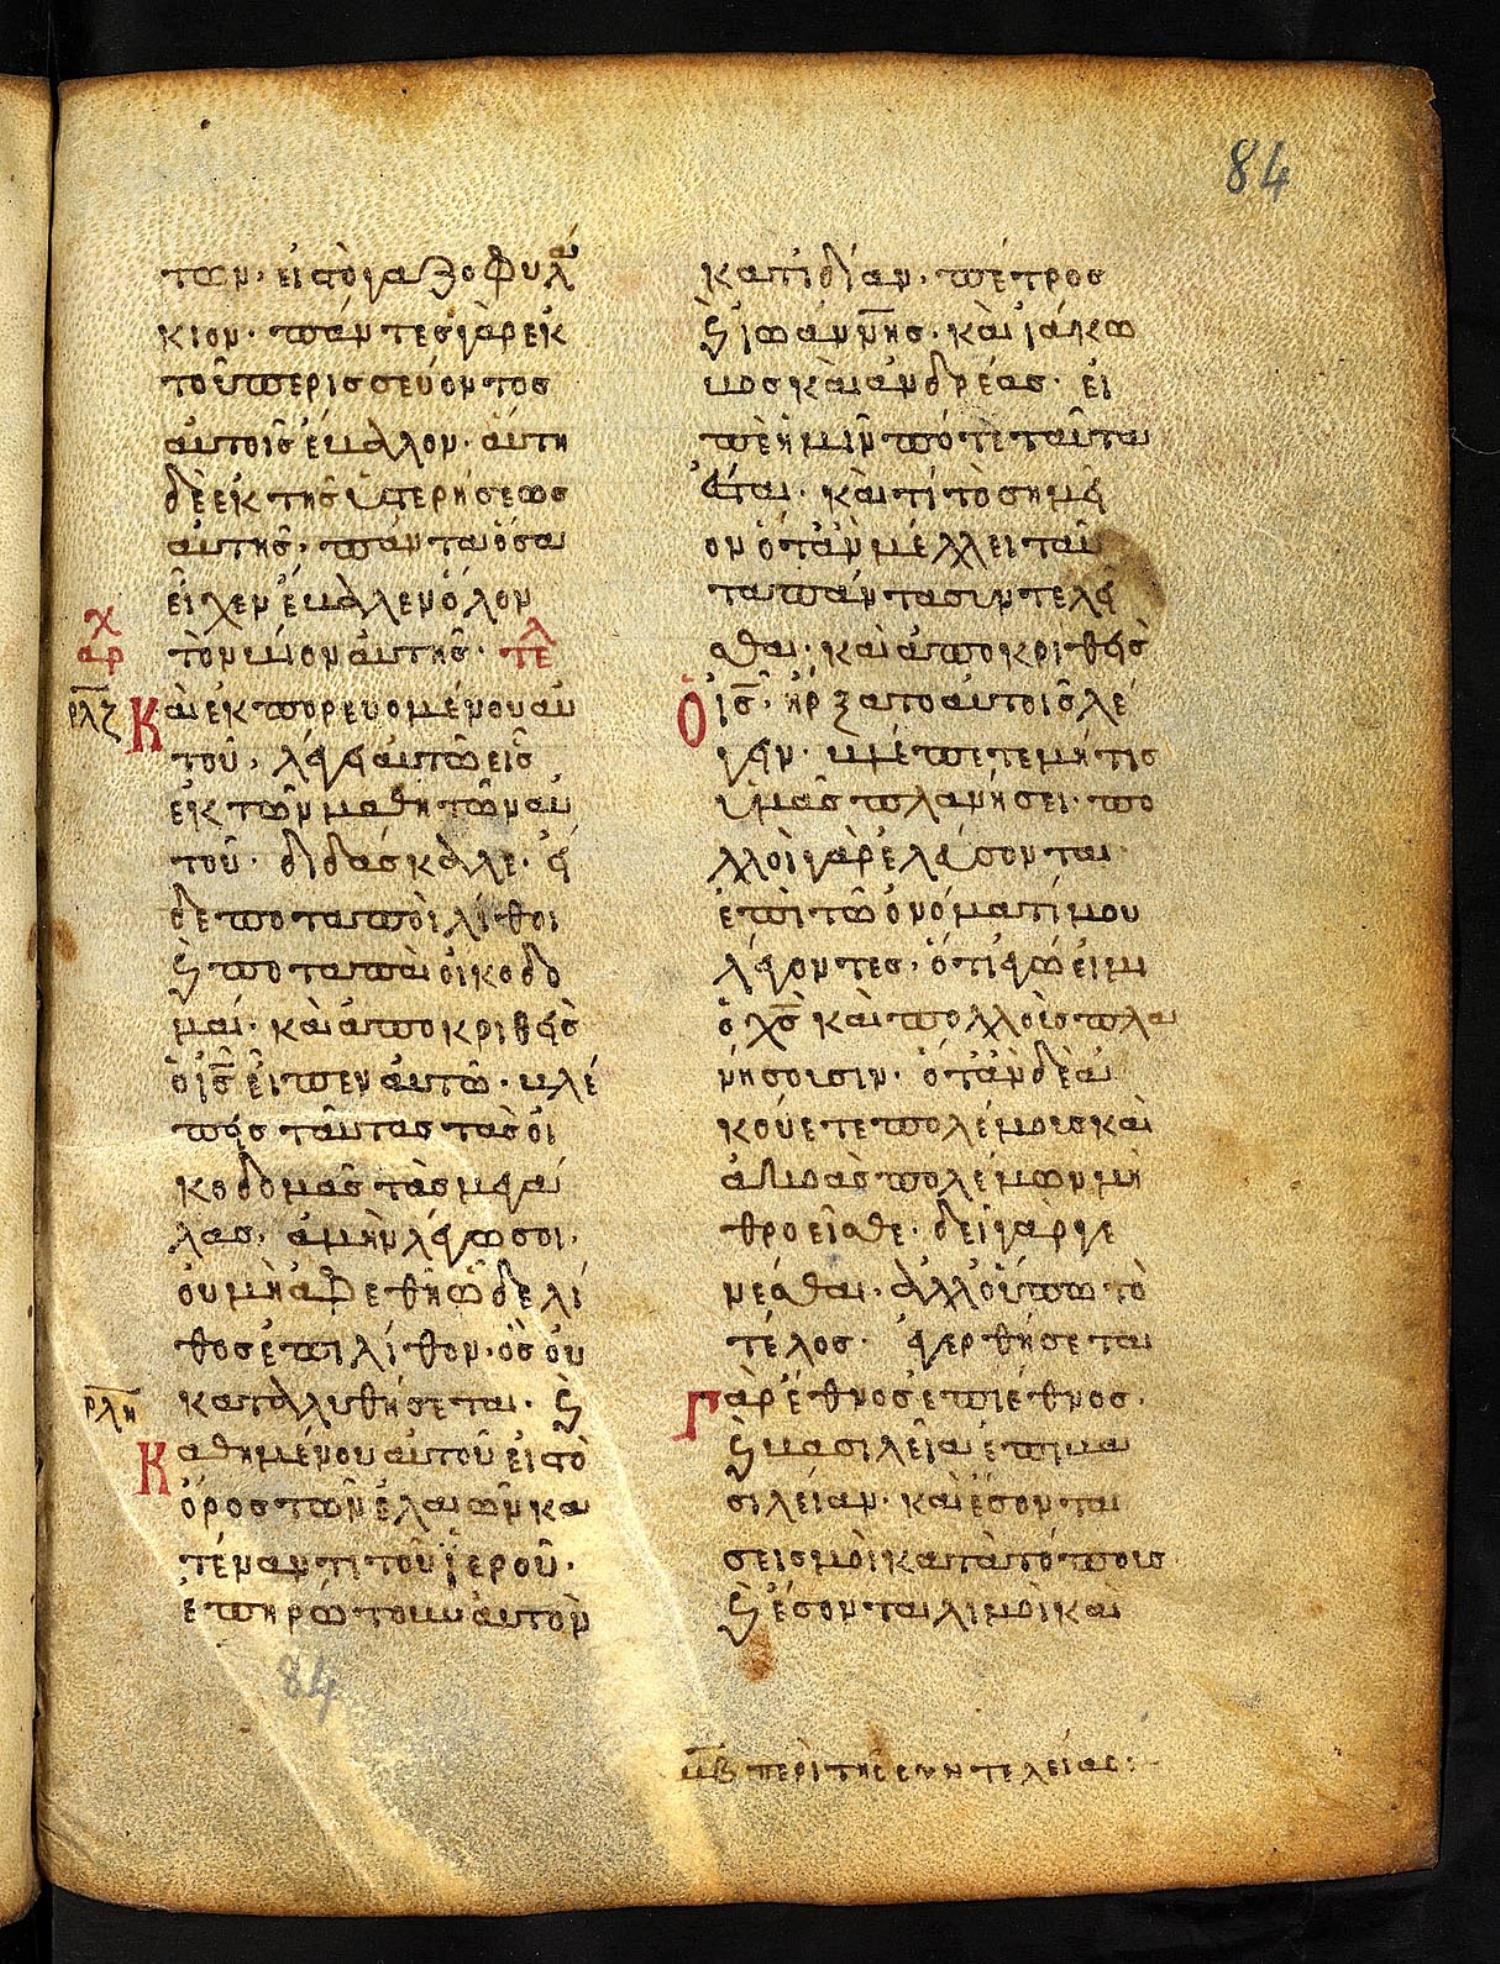 84
των· εἰς τὸ γαζοφυλά
κιον· πάντες γὰρ ἐκ
τοῦ περισσεύοντος
αὐτοῖς ἔβαλον· αὕτη
δὲ ἐκ τῆς ὑστερήσεως
αὐτῆς, πάντα ὅσα
εἶχεν ἔβαλεν ὅλον
τὸν βίον αὐτῆς· τελ
αρχ
ρλζ
Καὶ ἐκπορευομένου αὐ
τοῦ, λέγει αὐτῶ εἷς
ἐκ τῶν μαθητῶν αὐ
τοῦ· διδάσκαλε· ἴ
δε ποταποὶ λίθοι
ϗ ποταπαὶ οἰκοδο
μαί· καὶ ἀποκριθεὶς
ὁ ις εἶπεν αὐτῶ· βλέ
πεις ταύτας τὰς οἰ
κοδομὰς τὰς μεγά
λας, ἀμὴν λέγω σοι,
οὐ μὴ ἀφεθῆ ὧδε λί
θος ἐπι λίθον· ὃς οὐ
καταλυθήσεται· ϗ
ρλη
Καθημένου αὐτοῦ εἰς τὸ
ὄρος τῶν ἐλαιῶν κα
τέναντι τοῦ ἱεροῦ·
ἐπηρώτουν αὐτὸν
84
κατιδίαν· πέτρος
ϗ ιωάννης· καὶ ιάκω
βος καὶ ἀνδρέας· εἰ
πὲ ἡμῖν πότε ταῦτα
ἔσται· καὶ τί τὸ σημεῖ
ον ὅταν μέλλει ταῦ
τα πάντα συντελεῖ
σθαι· καὶ ἀποκριθεὶς
Ὁ ις· ἤρξατο αὐτοῖς λέ
γειν· βλέπετε μή τις
ὑμᾶς πλανήσει· πο
λλοὶ γὰρ ἐλεύσονται
ἐπὶ τῶ ὀνόματί μου
λέγοντες· ὅτι ἐγώ εἰμι
ὁ χς καὶ πολλοὺς πλα
νήσουσιν· ὅταν δὲ ἀ
κούετε πολέμους καὶ
ἀκοὰς πολέμων μὴ
θροεῖσθε· δεῖ γὰρ γε
νέσθαι· ἀλλ οὔπω τὸ
τέλος· ἐγερθήσεται
Γὰρ ἔθνος ἐπι ἔθνος·
ϗ βασιλεία ἐπι βα
σιλείαν· καὶ ἔσονται
σεισμοὶ κατὰ τόπους
ϗ ἔσονται λιμοὶ καὶ
μβ περὶ τῆς συντελείας: